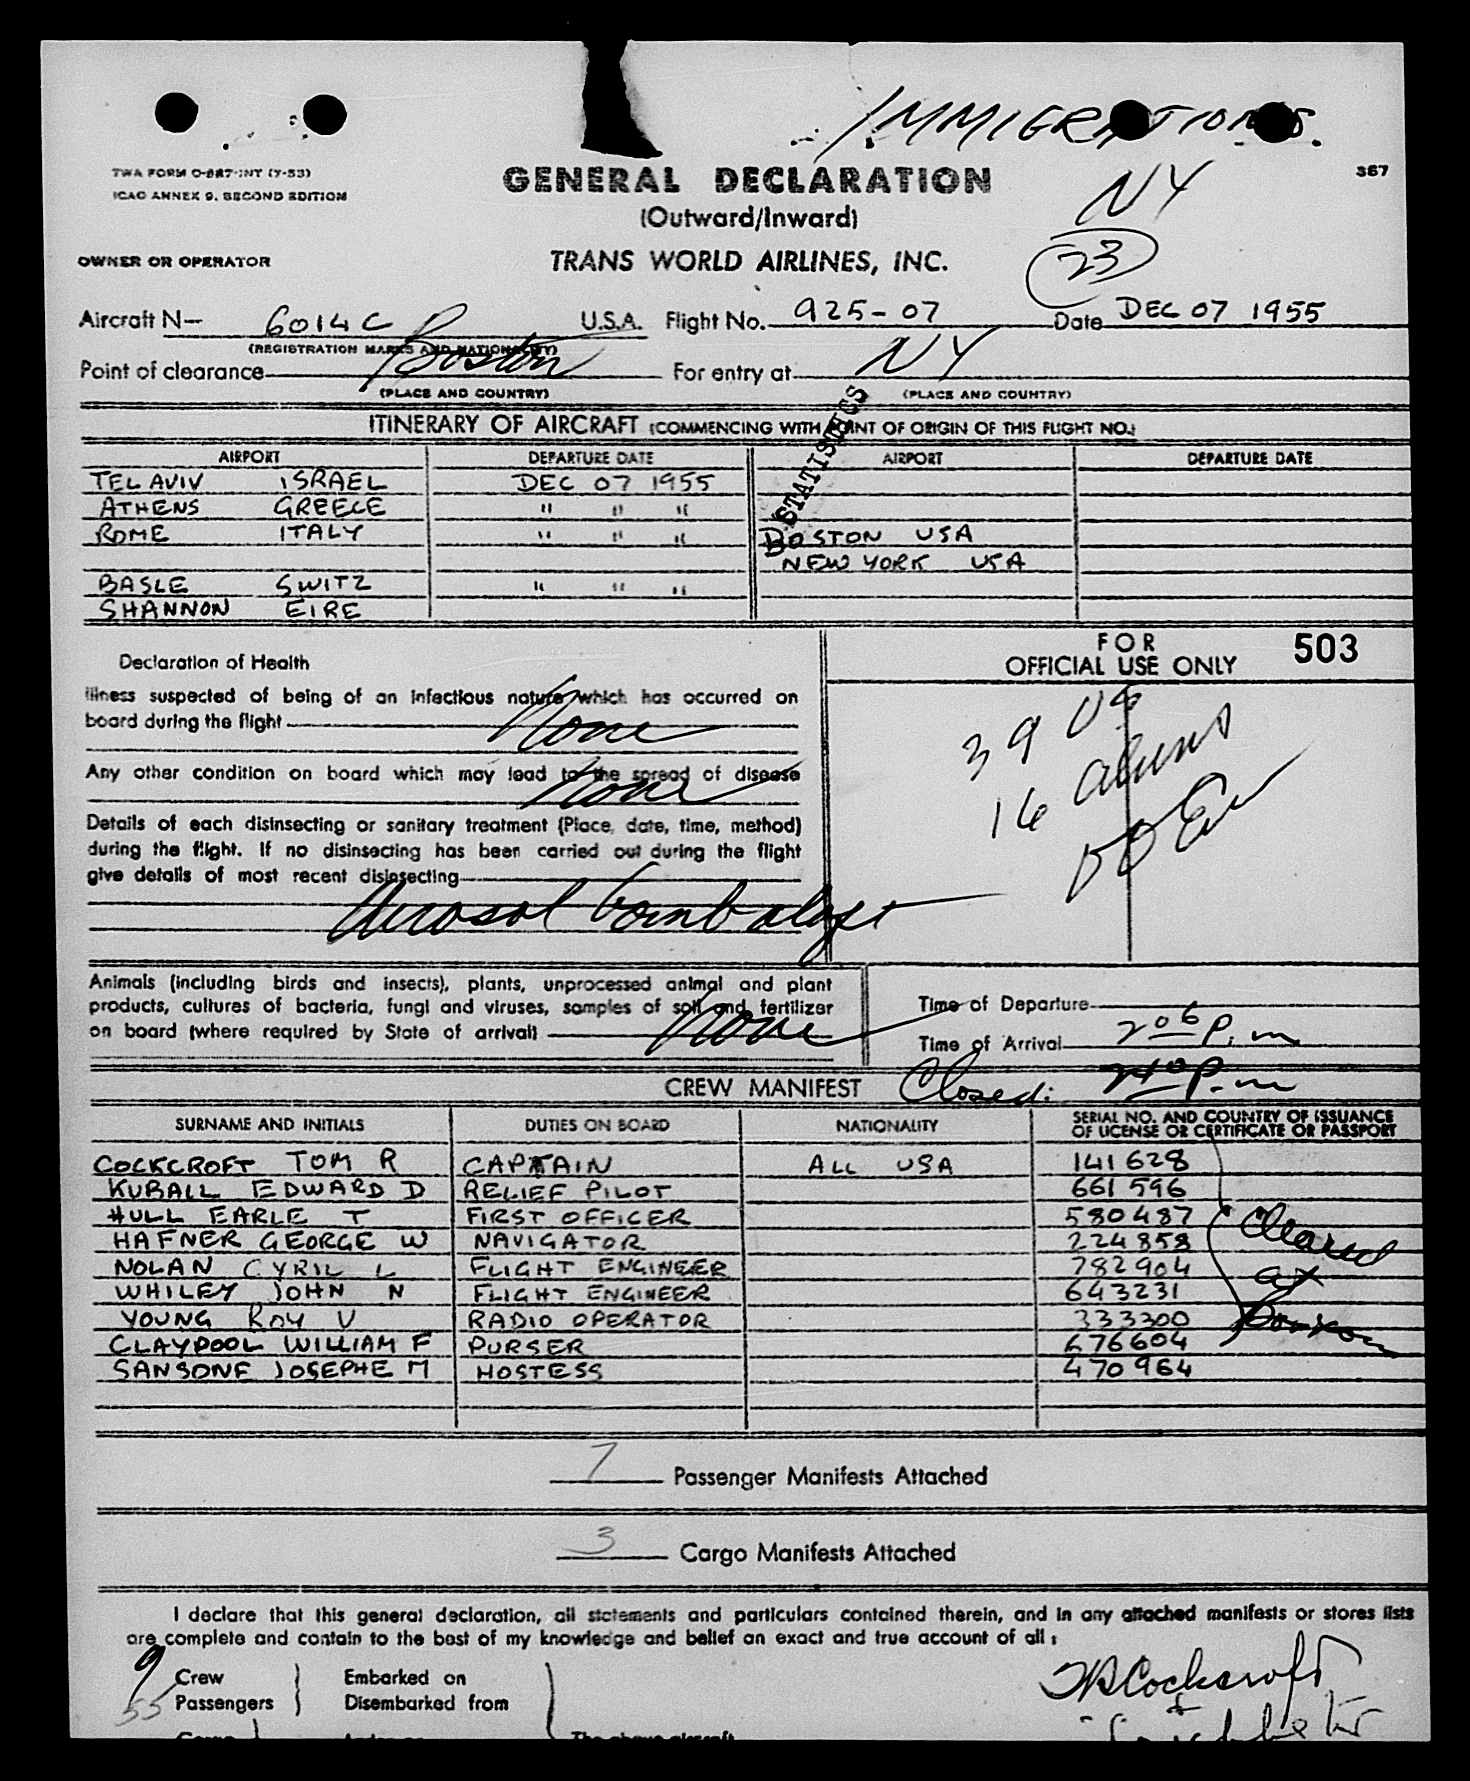 IMMIGRATIONS.
TWA FORM O-887-INT (7-53)
ICAO ANNEX 9, SECOND EDITION
GENERAL DECLARATION
367
NY
(Outward/Inward)
23
OWNER OR OPERATOR
TRANS WORLD AIRLINES, INC.
Aircraft N— 6014C U.S.A. Flight No. 925-07 Date DEC 07 1955
(REGISTRATION MARKS AND NATIONALITY)
Point of clearance Boston For entry at NY
(PLACE AND COUNTRY) (PLACE AND COUNTRY)
STATISTICS
ITINERARY OF AIRCRAFT (COMMENCING WITH POINT OF ORIGIN OF THIS FLIGHT NO.)
AIRPORT DEPARTURE DATE AIRPORT DEPARTURE DATE
TEL AVIV ISRAEL DEC 07 1955
ATHENS GREECE " " "
ROME ITALY " " " BOSTON USA
NEW YORK USA
BASLE SWITZ " " "
SHANNON EIRE
FOR
OFFICIAL USE ONLY 503
Declaration of Health
Illness suspected of being of an infectious nature which has occurred on
board during the flight None
39 US
16 aliens
Any other condition on board which may lead to the spread of disease
None
Details of each disinsecting or sanitary treatment (Place, date, time, method)
during the flight. If no disinsecting has been carried out during the flight
give details of most recent disinsecting
Aerosol bomb
Animals (including birds and insects), plants, unprocessed animal and plant
products, cultures of bacteria, fungi and viruses, samples of soil and fertilizer
on board (where required by State of arrival) None
Time of Departure
Time of Arrival 206 P.m
Closed: 240 P.m
CREW MANIFEST
SURNAME AND INITIALS DUTIES ON BOARD NATIONALITY SERIAL NO. AND COUNTRY OF ISSUANCE
OF LICENSE OR CERTIFICATE OR PASSPORT
COCKCROFT TOM R CAPTAIN ALL USA 141628
KUBALL EDWARD D RELIEF PILOT 661596
HULL EARLE T FIRST OFFICER 580487
HAFNER GEORGE W NAVIGATOR 224858
NOLAN CYRIL L FLIGHT ENGINEER 782904
WHILEY JOHN N FLIGHT ENGINEER 643231
YOUNG ROY V RADIO OPERATOR 333300
CLAYPOOL WILLIAM F PURSER 676604
SANSONE JOSEPHE M HOSTESS 470964
Cleared
at
Boston
7 Passenger Manifests Attached
3 Cargo Manifests Attached
I declare that this general declaration, all statements and particulars contained therein, and in any attached manifests or stores lists
are complete and contain to the best of my knowledge and belief an exact and true account of all:
9 Crew Embarked on
55 Passengers Disembarked from
TR Cockcroft
Cargo
The above aircraft